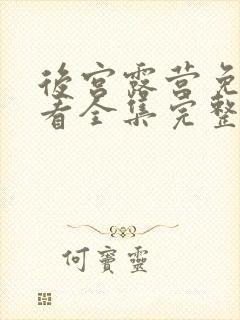 後宮露营免
看全集完整
何寶靈